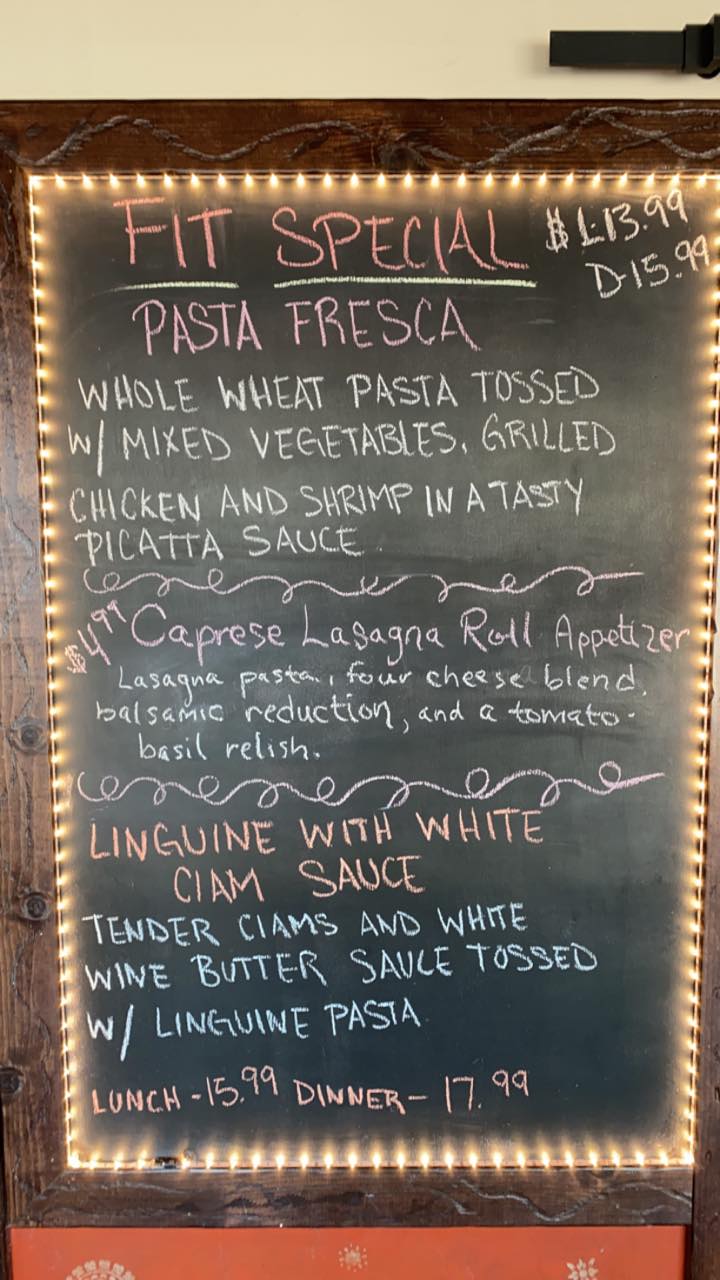 FIT SPECIAL $ L-13.99
D-15.99
PASTA FRESCA
WHOLE WHEAT PASTA TOSSED
W/ MIXED VEGETABLES, GRILLED
CHICKEN AND SHRIMP IN A TASTY
PICATTA SAUCE
$4.99 Caprese Lasagna Roll Appetizer
Lasagna pasta, four cheese blend,
balsamic reduction, and a tomato-
basil relish.
LINGUINE WITH WHITE
CLAM SAUCE
TENDER CLAMS AND WHITE
WINE BUTTER SAUCE TOSSED
W/ LINGUINE PASTA
LUNCH - 15.99 DINNER - 17.99